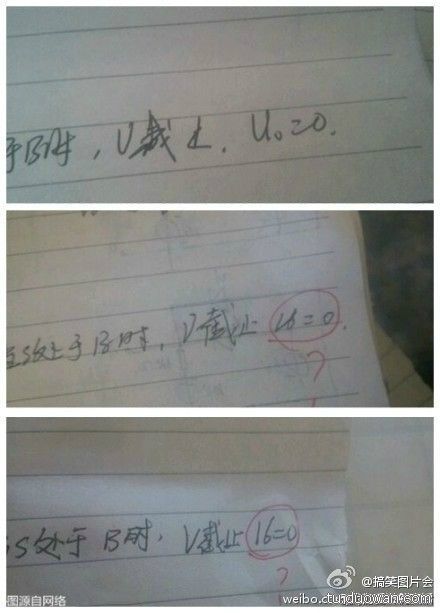 于B时，V截止．U₀=0．
当S处于B时，V截止 16=0．
?
S处于B时．V截止 16=0
?
图源自网络
@搞笑图片会
weibo.com/duowan
tu.duowan.com